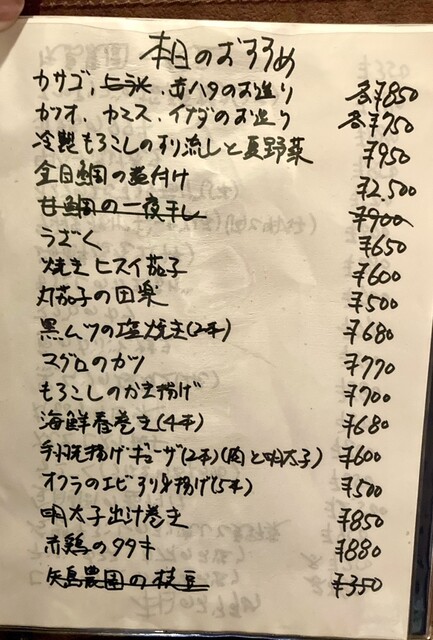 本日のおすすめ
カサゴ、ヒラメ、赤ハタのお造り 各¥850
カツオ、カマス、イナダのお造り 各¥750
冷製もろこしのすり流しと夏野菜 ¥950
金目鯛の煮付け ¥2,500
甘鯛の一夜干し ¥900
うざく ¥650
焼きヒスイ茄子 ¥600
丸茄子の田楽 ¥500
黒ムツの塩焼き(2ヶ) ¥680
マグロのカツ ¥770
もろこしのかき揚げ ¥700
海鮮春巻き(4ヶ) ¥680
手羽先揚げギョーザ(2ヶ)(肉と明太子) ¥600
オクラのエビすり身揚げ(5ヶ) ¥500
明太子出汁巻き ¥850
赤鶏のタタキ ¥880
矢島農園の枝豆 ¥350